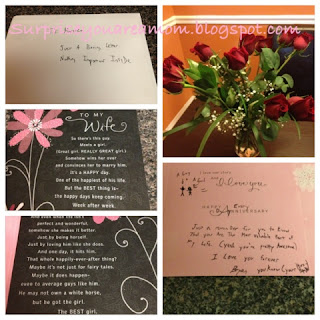 Surpriseyouareamom.blogspot.com
Just A Boring Letter
Nothing Important Inside
TO MY
Wife
So there's this guy.
Meets a girl.
(Great girl. REALLY GREAT girl.)
Somehow wins her over
and convinces her to marry him.
It's a HAPPY day.
One of the happiest of his life.
But the BEST thing is—
the happy days keep coming.
Week after week.
And even when life's not
perfect and wonderful,
somehow she makes it better.
Just by being herself.
Just by loving him like she does.
And one day, it hits him.
That whole happily-ever-after thing?
Maybe it's not just for fairy tales.
Maybe it does happen—
even to average guys like him.
He may not own a white horse,
but he got the girl.
The BEST girl.
I love you.
HAPPY
ANNIVERSARY
Just a reminder for you to know
that you are the most valuable part of
my life. (yeah you're pretty awesome)
I love you forever